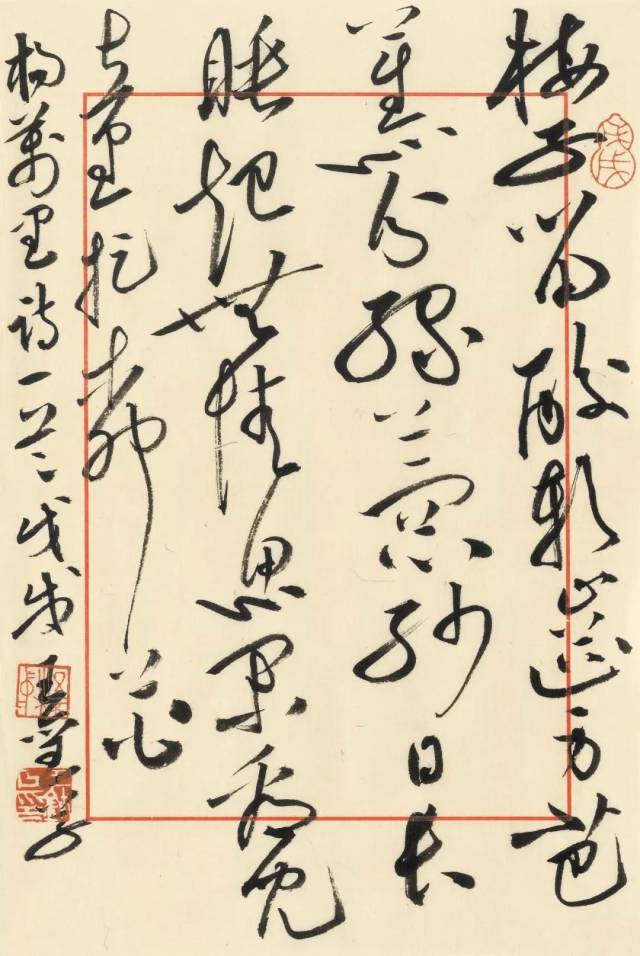 梅子留酸軟齒牙芭
蕉分綠與窗紗日長
睡起無情思閑看兒
童捉柳花
楊萬里詩一首戊戌